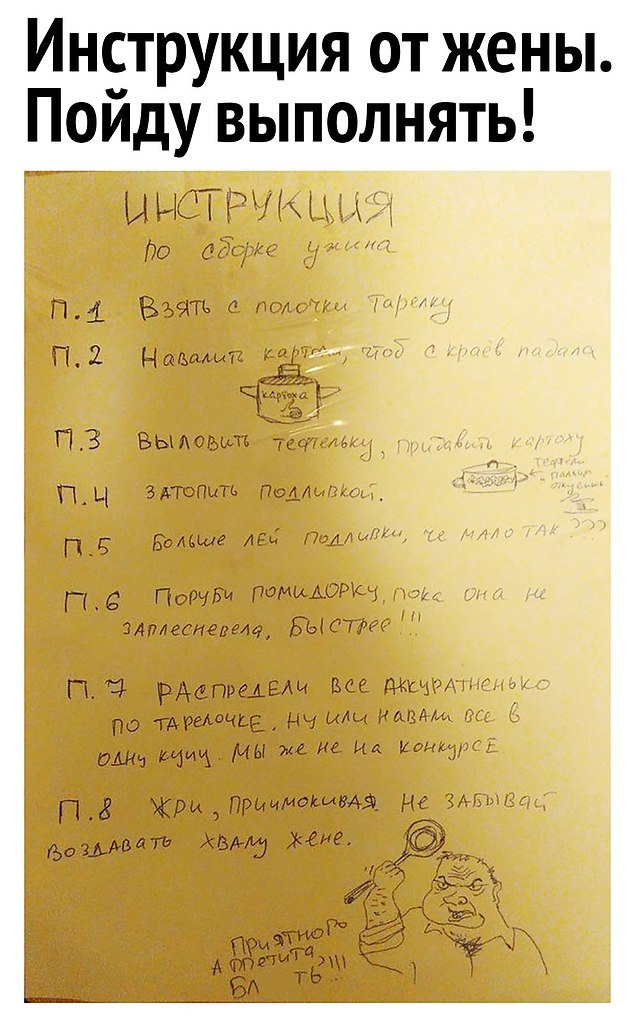 Инструкция от жены.
Пойду выполнять!
ИНСТРУКЦИЯ
по сборке ужина
П.1 Взять с полочки тарелку
П.2 Навалить картохи, чтоб с краёв падала
картоха
П.3 Выловить тефтельку, придавить картоху
тефтели
"пальцы
откусишь"
П.4 Затопить подливкой.
П.5 Больше лей подливки, че мало так ???
П.6 Поруби помидорку, пока она не
заплесневела, быстрее!!!
П.7 Распредели все аккуратненько
по тарелочке. Ну или навали все в
одну кучу. Мы же не на конкурсе
П.8 Жри, причмокивая, не забывай
воздавать хвалу жене.
Приятного
Аппетита
Бл ть!!!